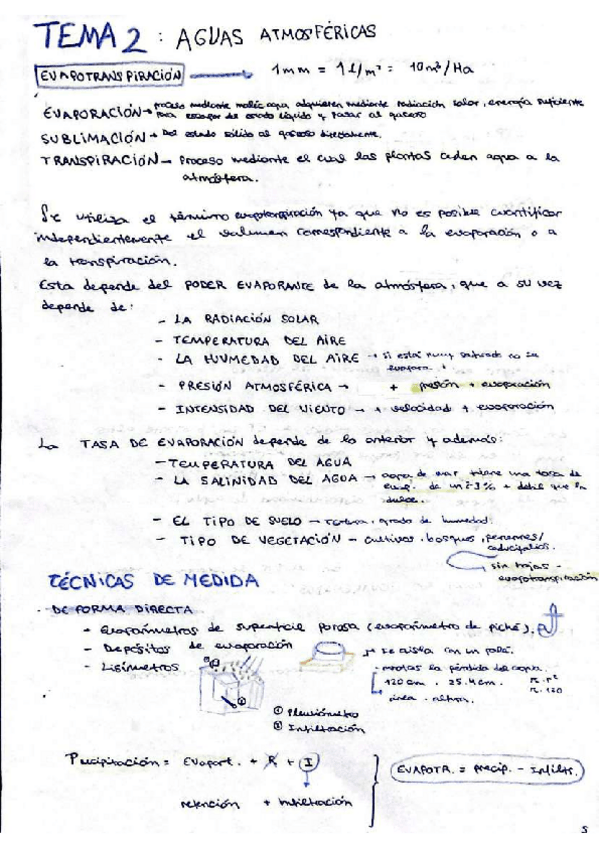 TEMA 2 : AGUAS ATMOSFÉRICAS
EVAPOTRANSPIRACIÓN → 1mm = 1 l/m² = 10 m³/Ha
EVAPORACIÓN → proceso mediante molec. agua adquieren mediante radiación solar, energía suficiente
para escapar de estado líquido y pasar al gaseoso
SUBLIMACIÓN → Del estado sólido al gaseoso directamente.
TRANSPIRACIÓN — Proceso mediante el cual las plantas ceden agua a la
atmósfera.
Se utiliza el término evapotranspiración ya que no es posible cuantificar
independientemente el volumen correspondiente a la evaporación o a
la transpiración.
Esta depende del PODER EVAPORANTE de la atmósfera, que a su vez
depende de:
- LA RADIACIÓN SOLAR
- TEMPERATURA DEL AIRE
- LA HUMEDAD DEL AIRE → si está muy saturado no se
evapora.
- PRESIÓN ATMOSFÉRICA → + presión + evaporación
- INTENSIDAD DEL VIENTO → + velocidad + evaporación
La TASA DE EVAPORACIÓN depende de lo anterior y además:
- TEMPERATURA DEL AGUA
- LA SALINIDAD DEL AGUA → agua de mar tiene una tasa de
evap. de un 2-3% + débil que la
dulce.
- EL TIPO DE SUELO → textura, grado de humedad.
- TIPO DE VEGETACIÓN - cultivos, bosques, perennes/
caducifolios.
sin hojas -
evapotranspiración
TÉCNICAS DE MEDIDA
· DE FORMA DIRECTA
- Evaporímetros de superficie porosa (evaporímetro de piché).
- Depósitos de evaporación → se aisla con un palé.
- Lisímetros - anotas la pérdida de agua.
120 cm . 25.4 cm.
área . altura.
π.r²
π.120
① Pluviómetro
② Infiltración
Precipitación = Evapot. + R + I
retención + infiltración
EVAPOTR. = precip. - Infiltr.
5